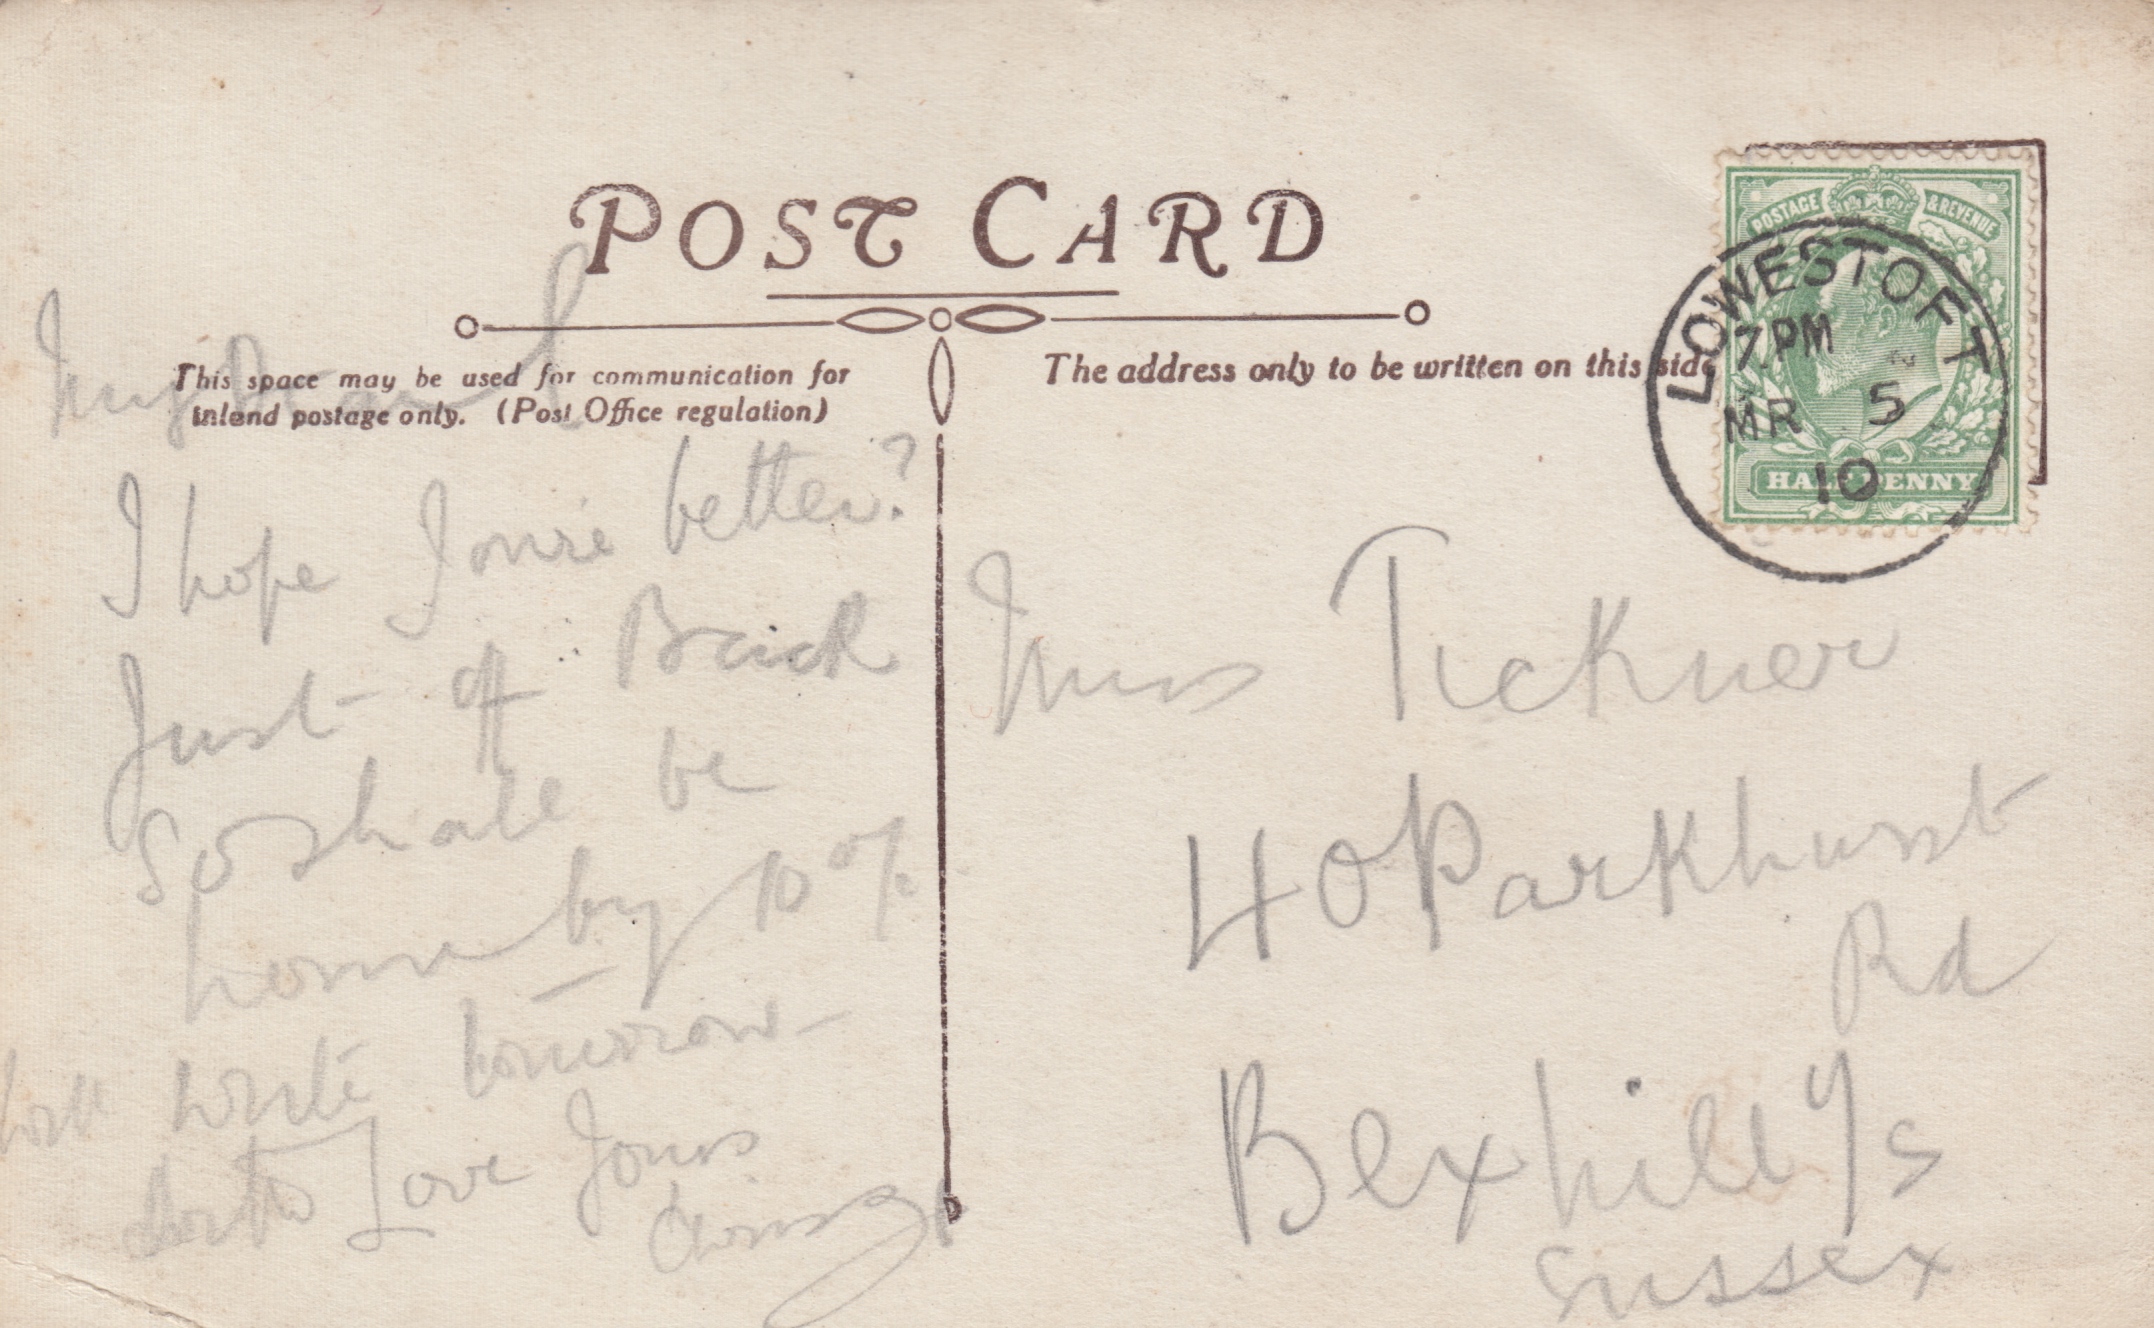 POST CARD
This space may be used for communication for
Inland postage only. (Post Office regulation)
The address only to be written on this side
POSTAGE & REVENUE
HALFPENNY
LOWESTOFT
7 PM
MR 5
10
My
I hope Youre better?
Just off Back
So shall be
home by 10
will write tomorrow
Love Yours
Miss Tickner
40 Parkhurst
Rd
Bexhill
Sussex